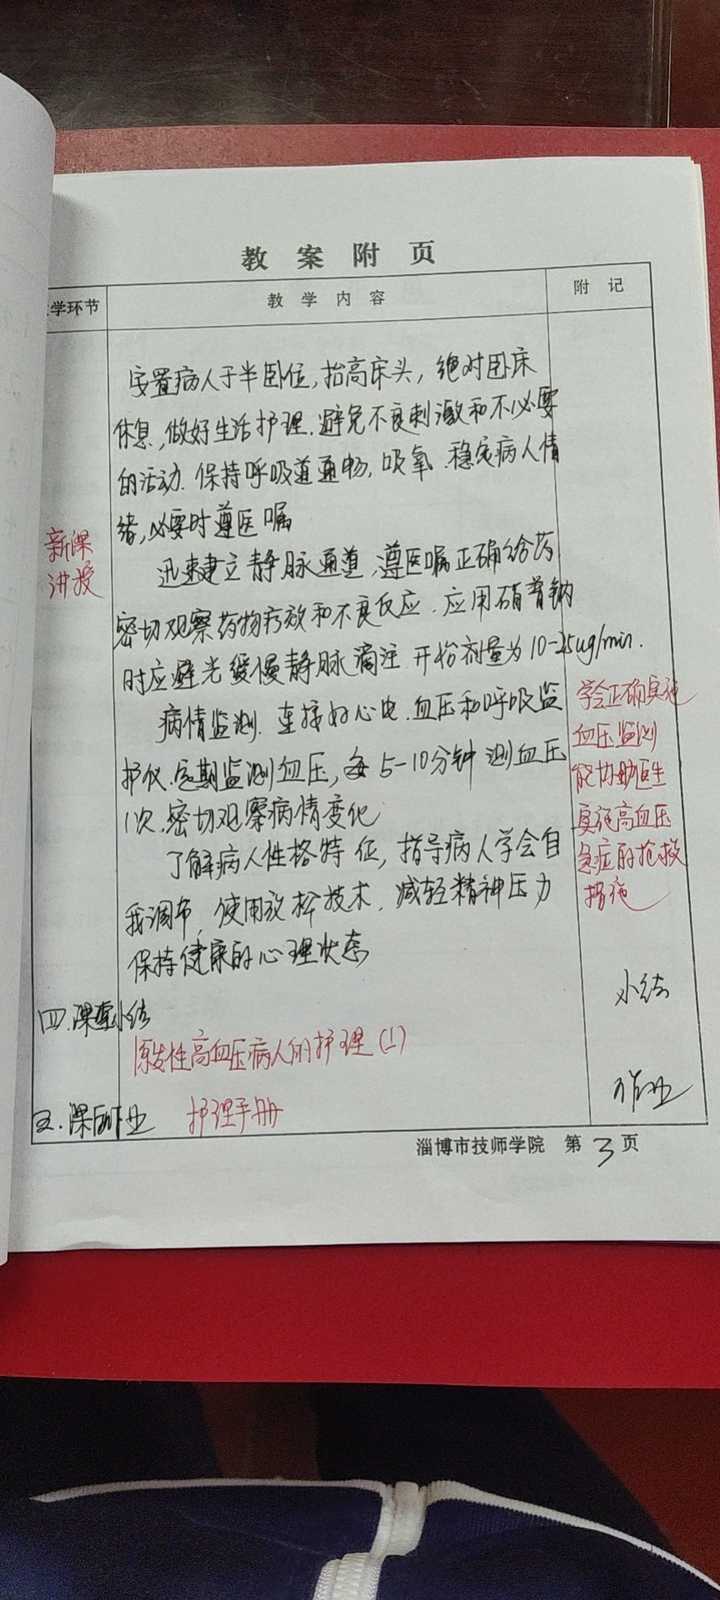 教案附页
学环节 教学内容 附记
安置病人于半卧位,抬高床头,绝对卧床
休息,做好生活护理.避免不良刺激和不必要
的活动.保持呼吸道通畅,吸氧.稳定病人情
绪,必要时遵医嘱
新课
讲授
迅速建立静脉通道,遵医嘱正确给药
密切观察药物疗效和不良反应.应用硝普钠
时应避光缓慢静脉滴注.开始剂量为10-25ug/min.
病情监测.连接好心电.血压和呼吸监
护仪.定期监测血压,每5-10分钟测血压
1次.密切观察病情变化
学会正确实施
血压监测
能协助医生
实施高血压
急症的抢救
措施
了解病人性格特征,指导病人学会自
我调节,使用放松技术.减轻精神压力
保持健康的心理状态
四.课堂小结 小结
原发性高血压病人的护理(1)
五.课后作业 护理手册 作业
淄博市技师学院 第3页